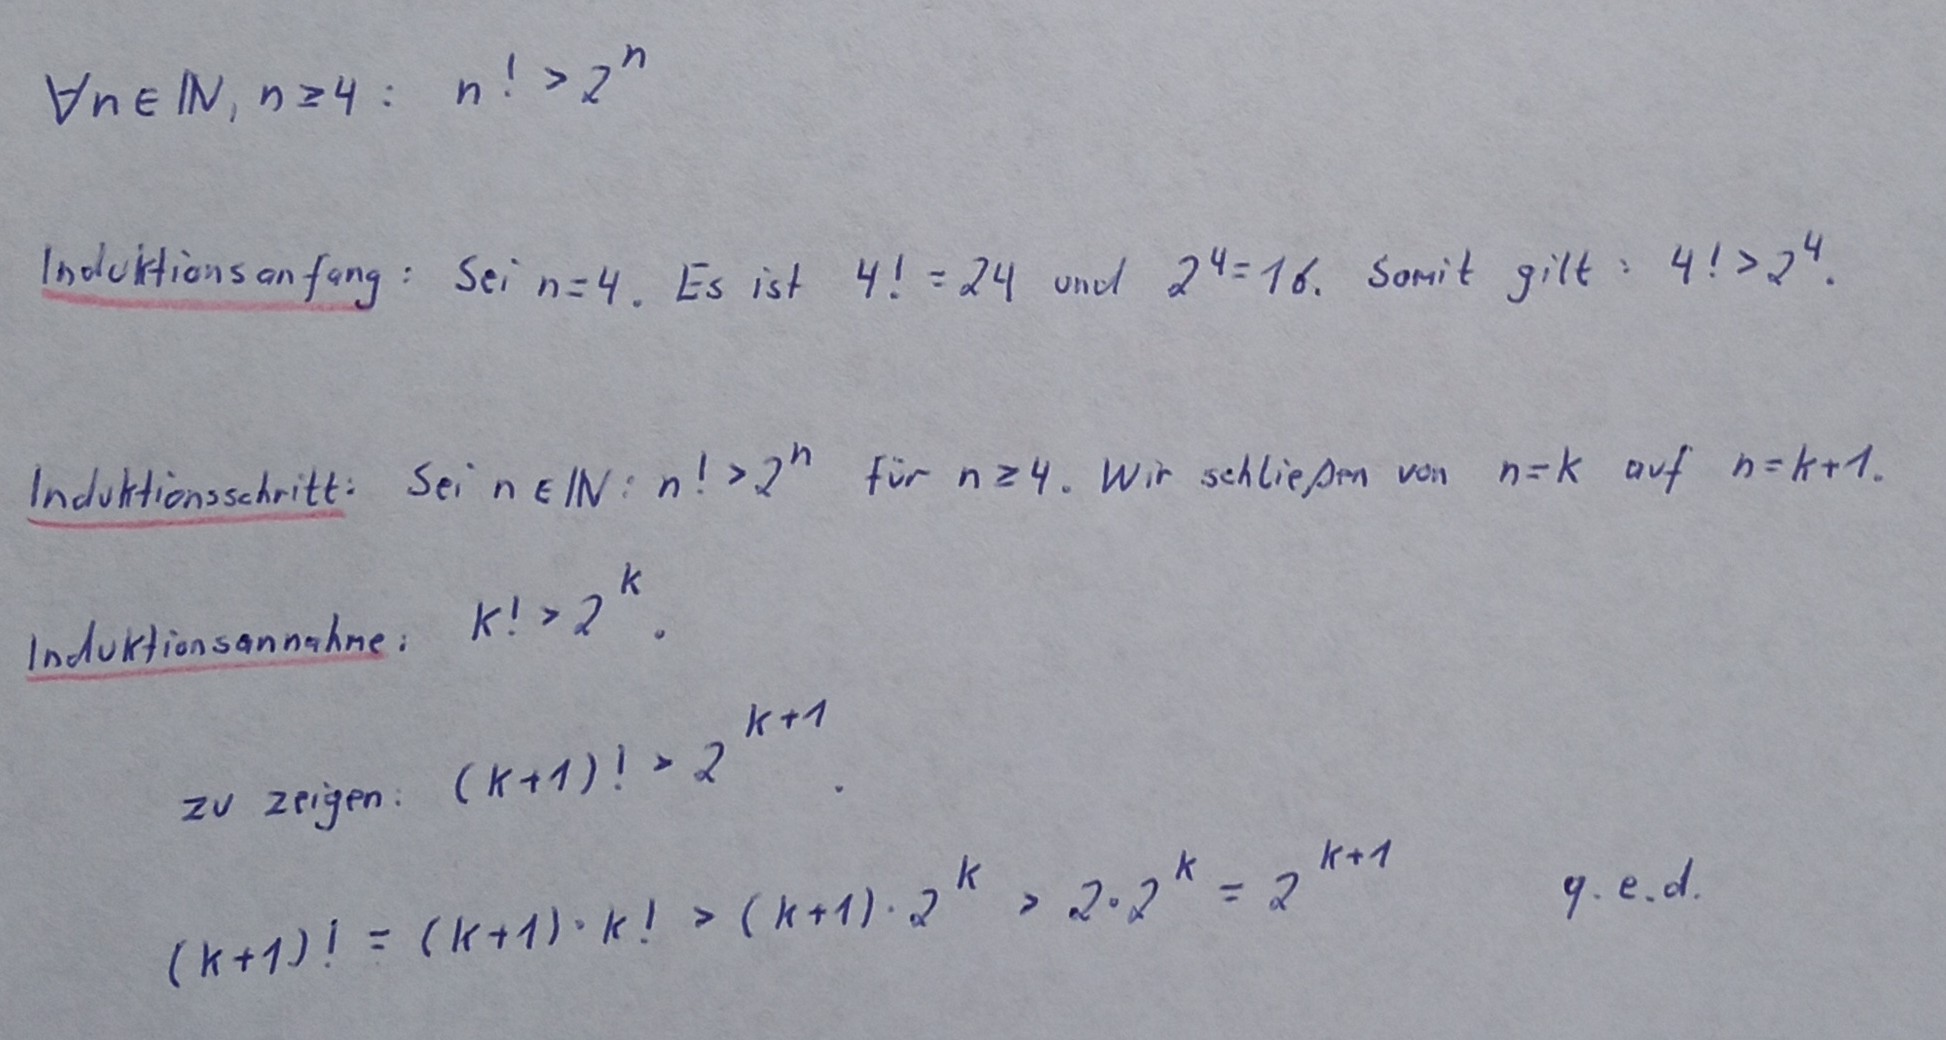 ∀n∈ℕ, n≥4: n! > 2ⁿ
Induktionsanfang: Sei n=4. Es ist 4! = 24 und 2⁴=16. Somit gilt: 4! > 2⁴.
Induktionsschritt: Sei n∈ℕ: n! > 2ⁿ für n≥4. Wir schließen von n=k auf n=k+1.
Induktionsannahme: k! > 2ᵏ.
zu zeigen: (k+1)! > 2ᵏ⁺¹.
(k+1)! = (k+1)·k! > (k+1)·2ᵏ > 2·2ᵏ = 2ᵏ⁺¹ q.e.d.